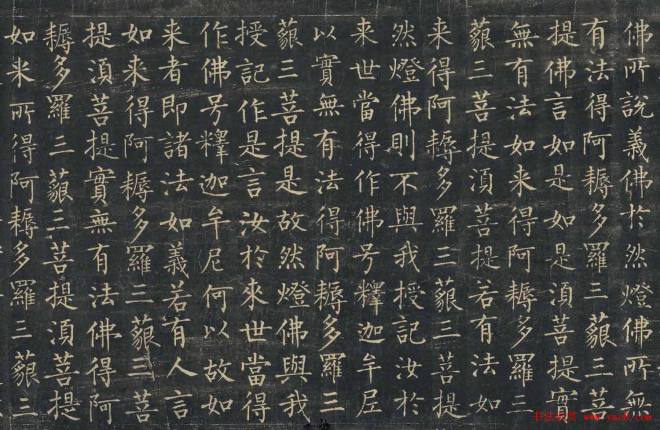 佛所說義佛於然燈佛所無
有法得阿耨多羅三藐三菩
提佛言如是如是須菩提實
無有法如来得阿耨多羅三
藐三菩提須菩提若有法如
来得阿耨多羅三藐三菩提
然燈佛則不與我授記汝於
来世當得作佛号釋迦牟尼
以實無有法得阿耨多羅三
藐三菩提是故然燈佛與我
授記作是言汝於來世當得
作佛号釋迦牟尼何以故如
来者即諸法如義若有人言
如来得阿耨多羅三藐三菩
提須菩提實無有法佛得阿
耨多羅三藐三菩提須菩提
如来所得阿耨多羅三藐三